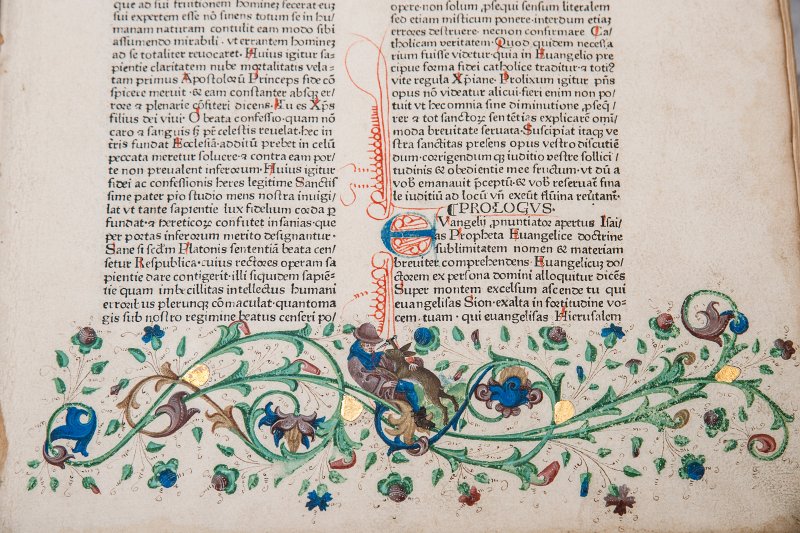 que ad sui fruitionem hominez fecerat eius
sui expertem esse nō sinens totum se in hu/
manam naturam contulit eam modo sibi
assumendo mirabili . vt errantem hominez
ad se totaliter reuocaret. Huius igitur sa/
pientie claritatem nube mortalitatis vela/
tam primus Apostoloꝝ Princeps fide cō
spicere meruit · & eam constanter absqꝫ er/
rore & plenarie cōfiteri dicens. Tu es Xp̄s
filius dei viui. O beata confessio. quam nō
caro & sanguis sꝫ pr̄ celestis reuelat. hec in
tris fundat Ecclesiā. aditū prebet in celū
peccata meretur soluere · & contra eam por/
te non preualent inferoꝝum. Huius igitur
fidei ac confessionis heres legitime Sanctis
sime pater pio studio mens nostra inuigi/
lat vt tante sapientie lux fidelium corda p̄
fundat · & hereticoꝝ confutet insanias. que
per portas inferoꝝum merito designantur.
Sane si scd̄m Platonis sententiā beata cen/
setur Respublica. cuius rectores operam sa
pientie dare contigerit. illi siquidem sapiē/
tie quam imbecillitas intellectus humani
erroribꝰ plerunqꝫ cōmaculat. quantoma
gis sub nostro regimine beatus censeri po/
opere non solum ꝓsequi sensum literalem
sed etiam misticum ponere. interdum etiaꝫ
errores destruere . necnon confirmare Ca/
tholicam veritatem. Quod quidem necessa
rium fuisse videtur. quia in Euangelio pre
cipue forma fidei catholice traditur · & totiꝰ
vite regula Xp̄iane. Prolixum igitur pn̄s
opus nō videatur alicui. fieri enim non po/
tuit vt hec omnia sine diminutione ꝓseqͥ/
rer · & tot sanctoꝝ sentētias explicare omī/
moda breuitate seruata. Suscipiat itaqꝫ ve
stra sanctitas presens opus vestro discutiē
dum. corrigendumqꝫ iuditio vestre sollici/
tudinis & obedientie mee fructum · vt dū a
vob̄ emanauit p̄ceptū · & vob̄ reseruat̄ fina
le iuditiū ad locū vn̄ exeūt flūina reūtant.
PROLOGVS.
EVangelii ꝓnuntiator apertus Isai/
as Propheta Euangelice doctrine
sublimitatem nomen & materiam
breuiter comprehendens. Euangelicuꝫ do/
ctorem ex persona domini alloquitur dicēs
Super montem excelsum ascende tu qui
euangelisas Sion. exalta in foꝛtitudine vo/
cem tuam · qui euangelisas Hierusalem